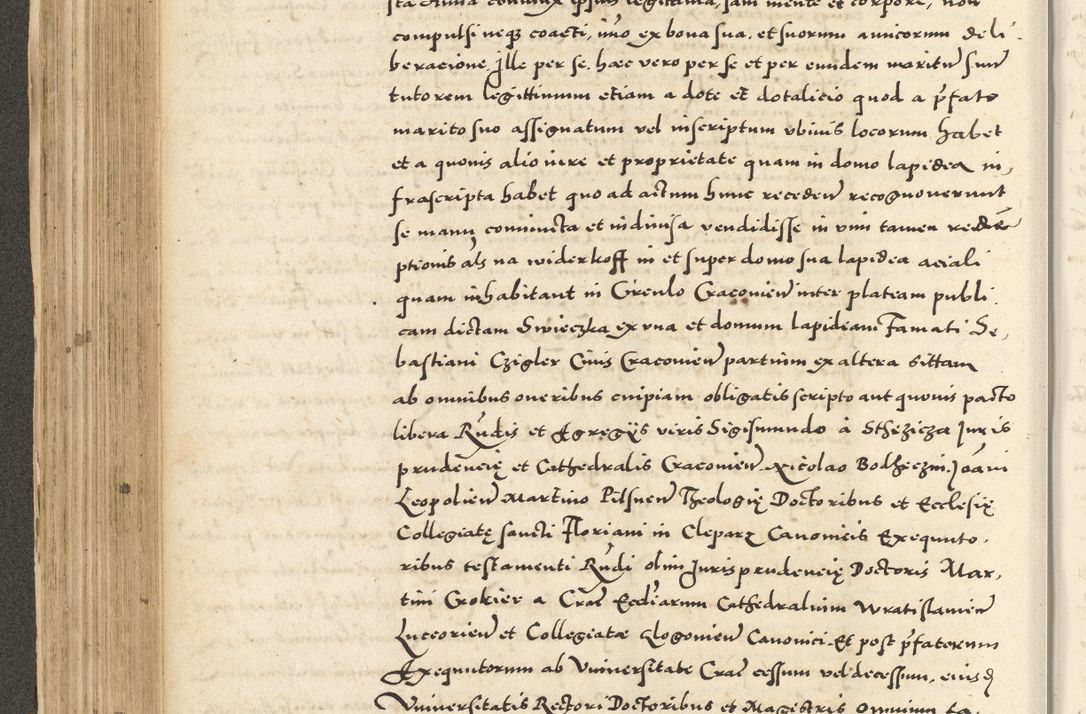 sta Anna coniunx ipsius legittima, sani mente et corpore, non
compulsi neq3 coacti, imo ex bona sua, et suorum amicorum deli
beracione. Ille per se. haec vero per se et per eundem maritu suu
tutorem legittimum etiam a dote et dotalicio quod a pfato
marito suo assignatum vel inscriptum vbiuis locorum habet
et a quouis alio iure et proprietate quam in domo lapidea in,
frascripta habet quo ad actum hunc receden recognouerunt
se manu coniuncta et indiuisa vendidisse in vim tamen redem
ptionis als na widerkoff in et super domo sua lapidea aciali
quam inhabitant in Circulo Cracouien inter plateam publi
cam dictam Swieczka ex vna et domum lapideam Famati Se,
bastiani Czigler Ciuis Cracouien partium ex altera sittam
ab omnibus oneribus cuipiam obligatis scripto aut quouis pacto
libera Rndis et Egregijs viris Sigismundo à Sthezicza Juris
prudencię et Cathedralis Cracouien. Nicolao Bodzeczin. Joani
Leopolien Martino Pilsnen Theologię Doctoribus et Ecclesię
Collegiatę sancti Floriani in Clepar3 Canonicis Exequuto,
ribus testamenti Rndi olim Jurisprudencię Doctoris Mar,
tini Crokier a Crac Eccliarum Cathedralium Wratislauien
Luceorien et Collegiatae Glogouien Canonici. Et post pfatorum
Exequutorum ab Vniuersitate Crac cessum vel decessum, eiusd
Vniuersitatis Rectori Doctoribus et Magistris omnium